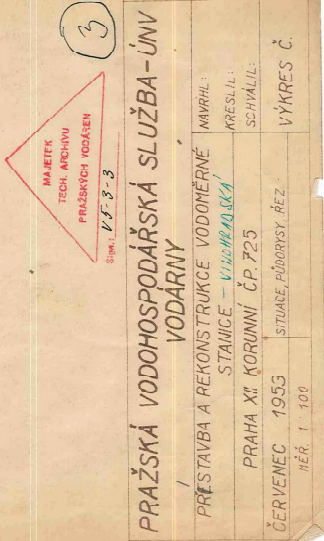 3
MAJETEK
TECH. ARCHIVU
PRAŽSKÝCH VODÁREN
Sign.: V 5-3-3
PRAŽSKÁ VODOHOSPODÁŘSKÁ SLUŽBA-ÚNV
VODÁRNY
PŘESTAVBA A REKONSTRUKCE VODOMĚRNÉ
STANICE - VINOHRADSKÁ
PRAHA XII KORUNNÍ ČP. 725
NAVRHL:
KRESLIL:
SCHVÁLIL:
ČERVENEC 1953
MĚŘ. 1:100
SITUACE, PŮDORYSY, ŘEZ
VÝKRES Č.